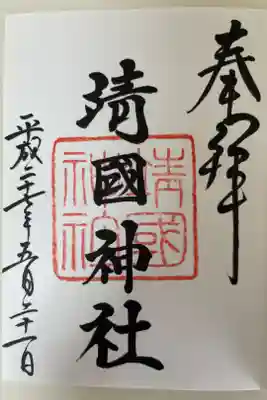 奉拝
靖國神社
靖國神社
平成二十七年五月二十一日